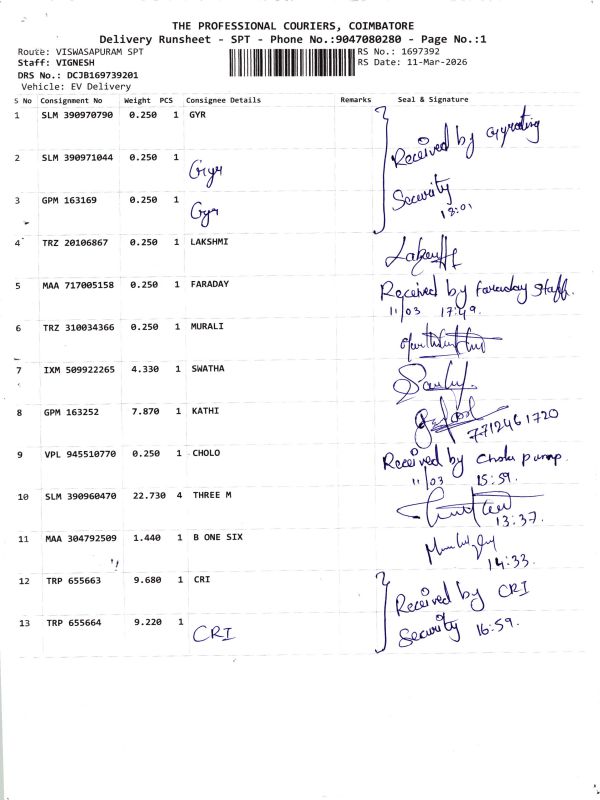 THE PROFESSIONAL COURIERS, COIMBATORE
Delivery Runsheet - SPT - Phone No.:9047080280 - Page No.:1
Route: VISWASAPURAM SPT RS No.: 1697392
Staff: VIGNESH RS Date: 11-Mar-2026
DRS No.: DCJB169739201
Vehicle: EV Delivery
S No Consignment No Weight PCS Consignee Details Remarks Seal & Signature
1 SLM 390970790 0.250 1 GYR
Received by Gyrating
2 SLM 390971044 0.250 1 Gyr
Security
3 GPM 163169 0.250 1 Gyr
18:01
4 TRZ 20106867 0.250 1 LAKSHMI
5 MAA 717005158 0.250 1 FARADAY Received by Faraday Staff.
11/03 17:49.
6 TRZ 310034366 0.250 1 MURALI
7 IXM 509922265 4.330 1 SWATHA
8 GPM 163252 7.870 1 KATHI
7712461720
9 VPL 945510770 0.250 1 CHOLO Received by Chola pump.
11/03 15:59.
10 SLM 390960470 22.730 4 THREE M
13:37.
11 MAA 304792509 1.440 1 B ONE SIX
14:33.
12 TRP 655663 9.680 1 CRI Received by CRI
13 TRP 655664 9.220 1 CRI Security 16:59.